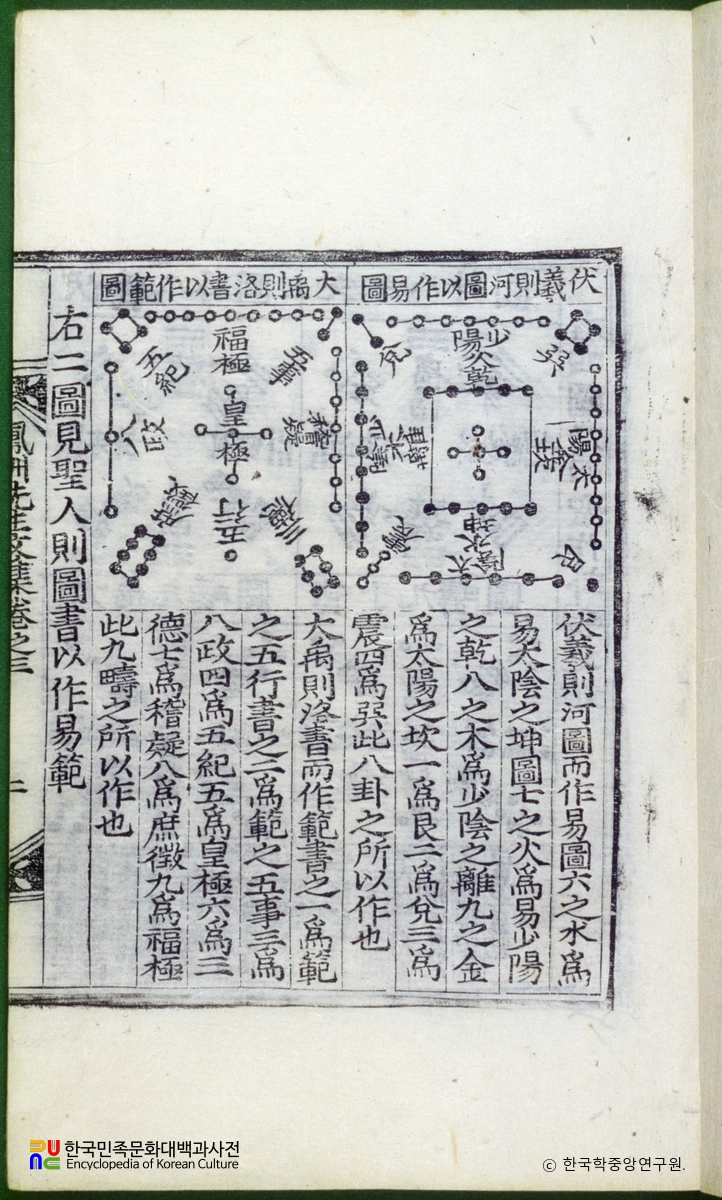 伏羲則河圖以作易圖
大禹則洛書以作範圖
巽
少陽火乾
兌
太陽
艮
太陰水坤
五事
福極
五紀
稽疑
皇極
八政
三德
五行
庶徵
伏羲則河圖而作易圖六之水爲
易太陰之坤圖七之火爲易少陽
之乾八之木爲少陰之離九之金
爲太陽之坎一爲艮二爲兌三爲
震四爲巽此八卦之所以作也
大禹則洛書而作範書之一爲範
之五行書之二爲範之五事三爲
八政四爲五紀五爲皇極六爲三
德七爲稽疑八爲庶徵九爲福極
此九疇之所以作也
右二圖見聖人則圖書以作易範
先生文集卷之三
二
한국민족문화대백과사전
Encyclopedia of Korean Culture
ⓒ 한국학중앙연구원.